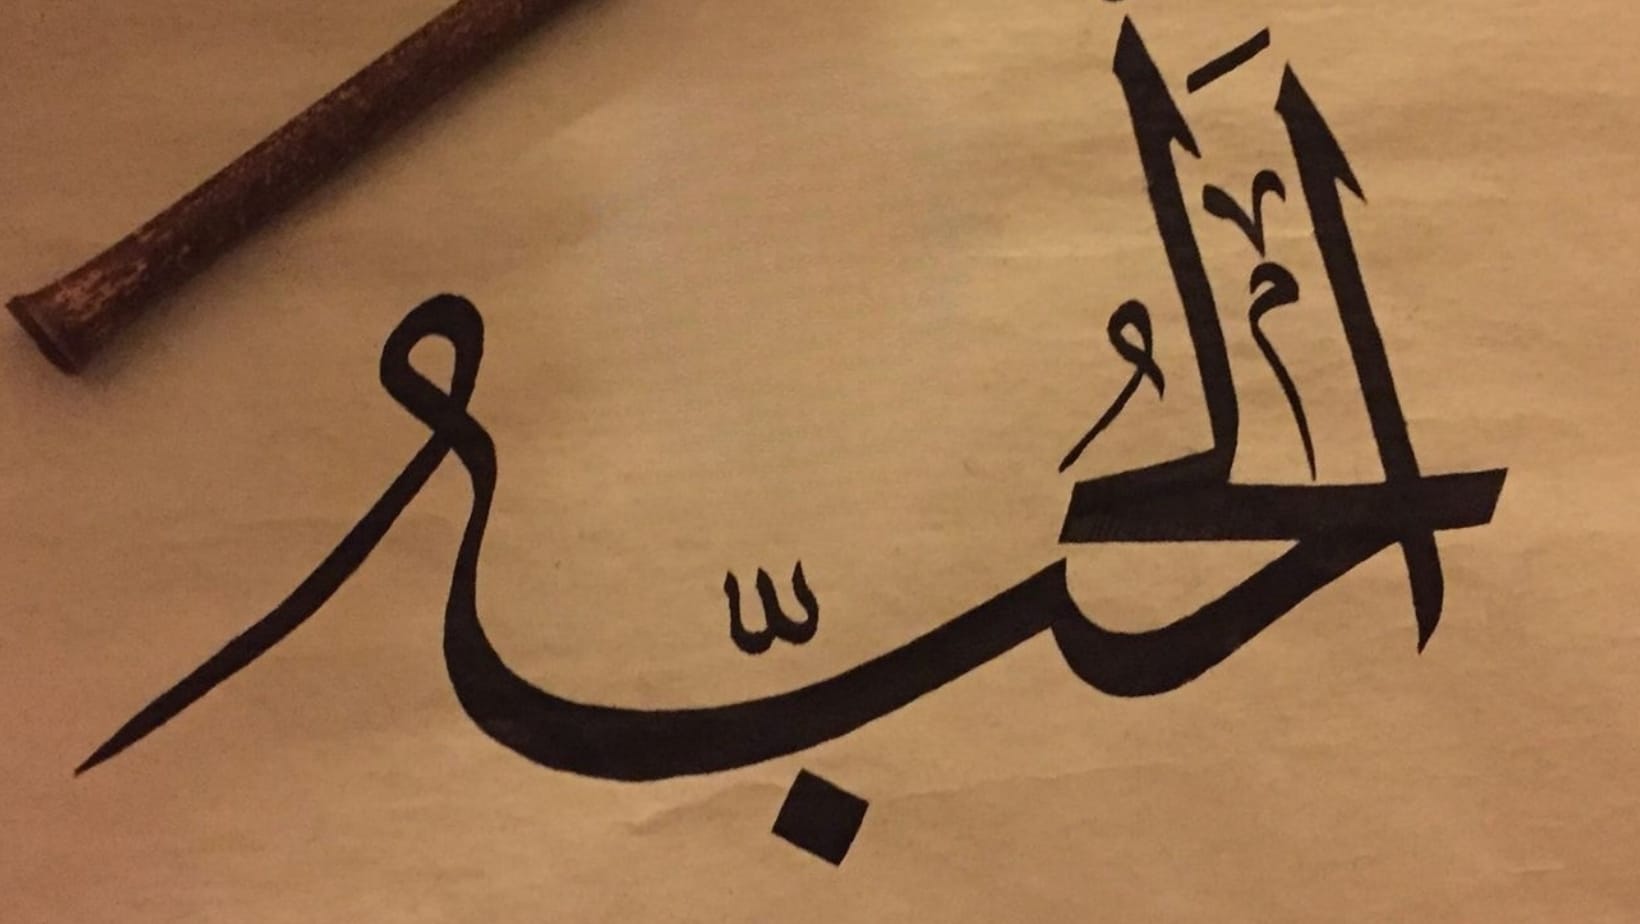 اَلحُبُّ